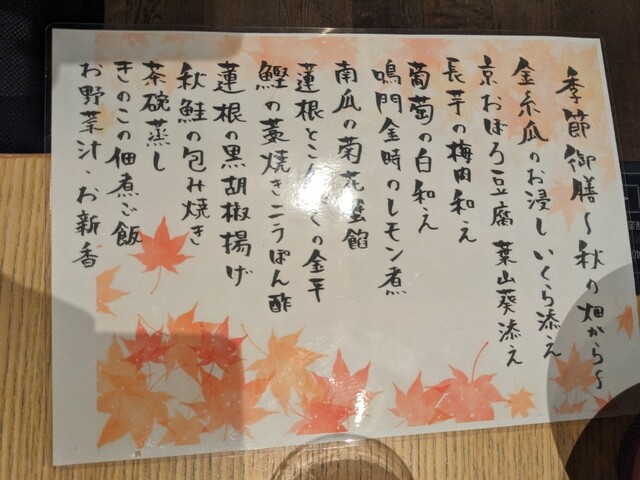 季節御膳～秋の畑から～
金糸瓜のお浸し いくら添え
京おぼろ豆腐 葉山葵添え
長芋の梅肉和え
葡萄の白和え
鳴門金時のレモン煮
南瓜の菊花蟹餡
蓮根とこんにゃくの金平
鰹の藁焼き ニラぽん酢
蓮根の黒胡椒揚げ
秋鮭の包み焼き
茶碗蒸し
きのこの佃煮ご飯
お野菜汁・お新香